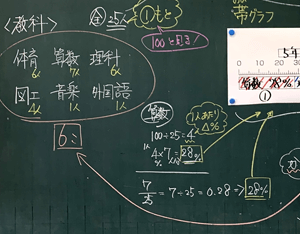 <教科>
全 25人
①もと
100と見る!
帯グラフ
体育 算数 理科
6人 7人 6人
図工 音楽 外国語
4人 1人 1人
6こ
算数
1人あたり
△%
100÷25=4
4×7=28%
7/25=7÷25=0.28⇒28%
5年
0 10 20 30
算数 28%
①